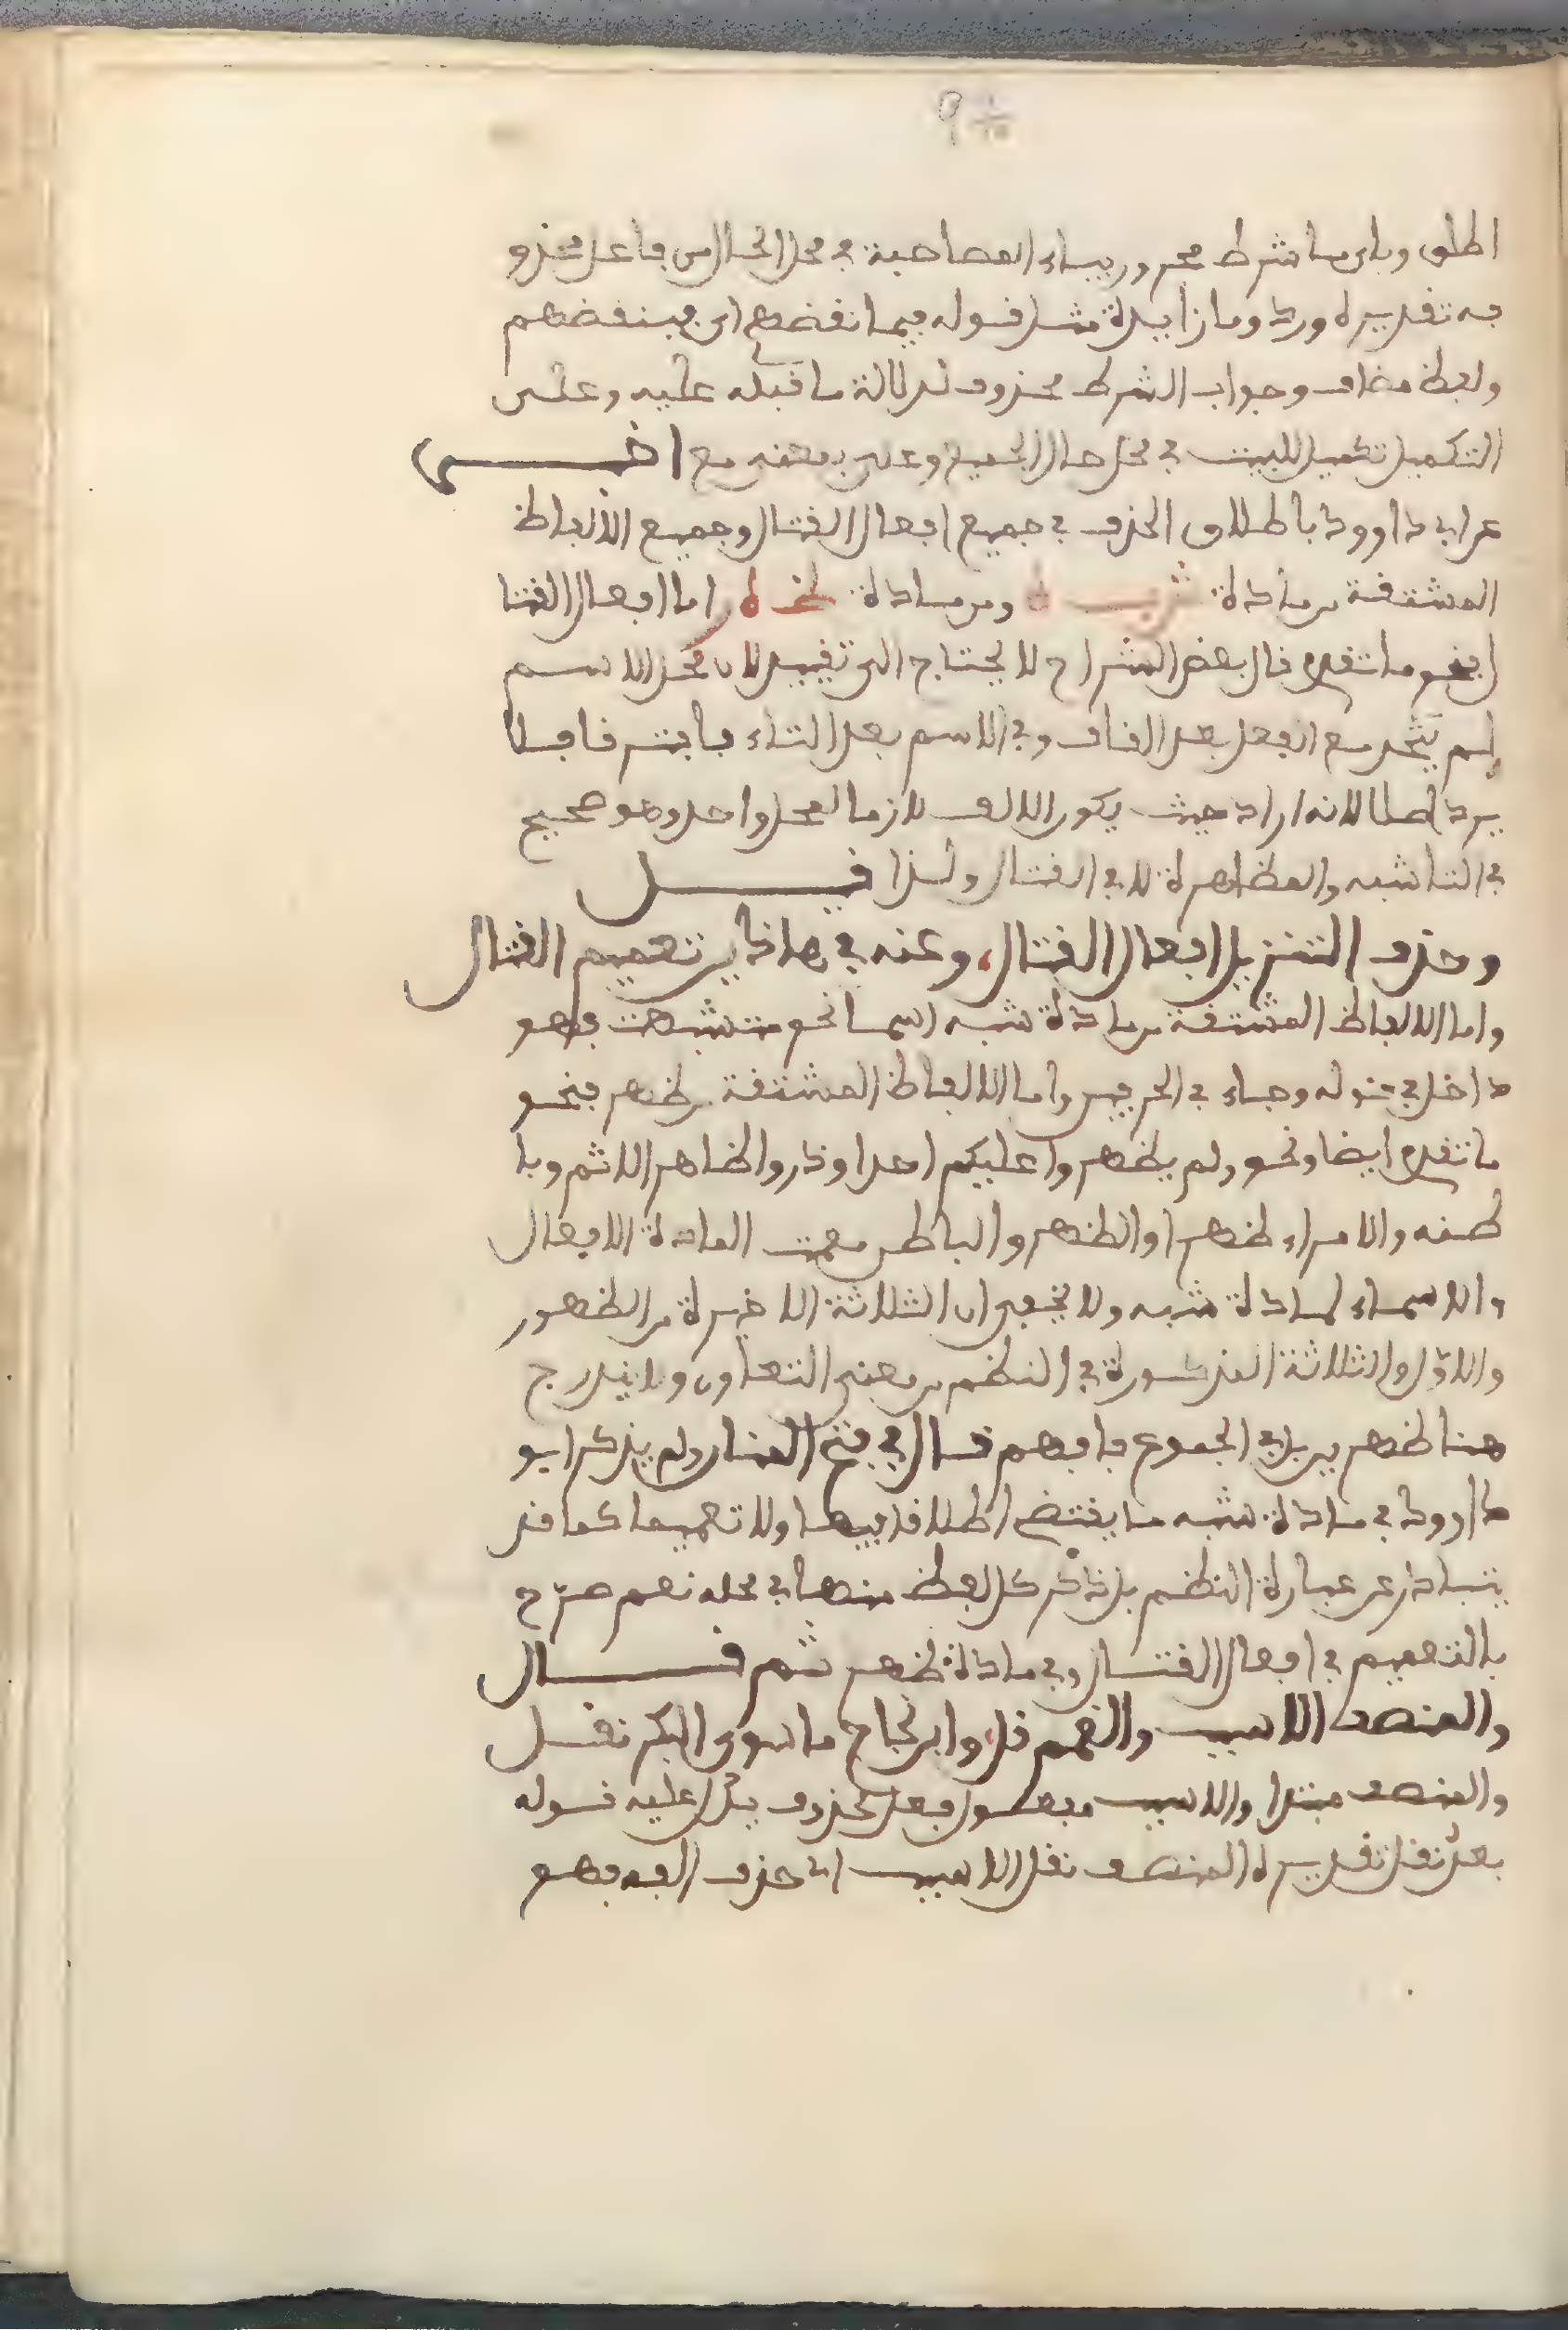 اطلق وباي ما شرط مجرور بباء المصاحبة في محل الحال من فاعل محذو
به تقديره ورد وما زايدة مثل قوله فيما نقضهم اي فبنقضهم
ولفظ مضاف وجواب الشرط محذوف لدلالة ما قبله عليه وعلى
التكميل تكميل للبيت في محل حال الجميع وعلى بمعنى مع اخـــى
عن ابي داوود باطلاق الحذف في جميع افعال القتال وجميع الالفاظ
المشتقة من مادة شبـــه ومن مادة ظهر اما افعال القتا
ل فنحو ما تقدم قال بعض الشراح لا يحتاج الى تقييد لان محل الاسم
لم يتحد مع الفعل بعد القاف وفي الاسم بعد التاء فافتـرقا فلا
يرد اصلا لانه اراد حيث يكون الالف لازما لمحل واحد وهو صحيح
في التاشبه والمظاهرة لا في القتال ولذا قيـــل
وحذف التنزيل افعال القتال، وعنه في هاذين تعميم القتال
واما الالفاظ المشتقة من مادة شبه اسما نحو متشبهت فهو
داخل في عنوله وجاء في الحرفين واما الالفاظ المشتقة من ظهر فنحو
ما تقدم ايضا ونحو ولم يظهروا عليكم احدا وذروا ظاهر الاثم وبا
طنه والامراء ظهرا والظهر والباطن فعمت المادة الافعال
والاسماء لمادة شبه ولا يخفى ان الثلاثة الاخيرة من الظهور
والاول والثلاثة المذكورة في النظم من معنى التعاون ولا يندرج
هنا ظهرين بل في الجموع فافهم قال في فتح المنان ولم يذكر ابو
داوود في مادة شبه ما يقتضي اطلاقا فيها ولا تعميما كما قد
يتبادر من عبارة النظم بل ذكر كل لفظ منها في محله نعم صرح
بالتعميم في افعال القتال وفي مادة ظهر ثم قـــال
والمنصف الاسبب والغمم قل، وابن نجاح ما سوى البكر نقل
والمنصف مبتدا والاسبب مفعول فعل محذوف يدل عليه قوله
بعد نقل تقديره المنصف نقل الاسبب اي حذف الفه فهو